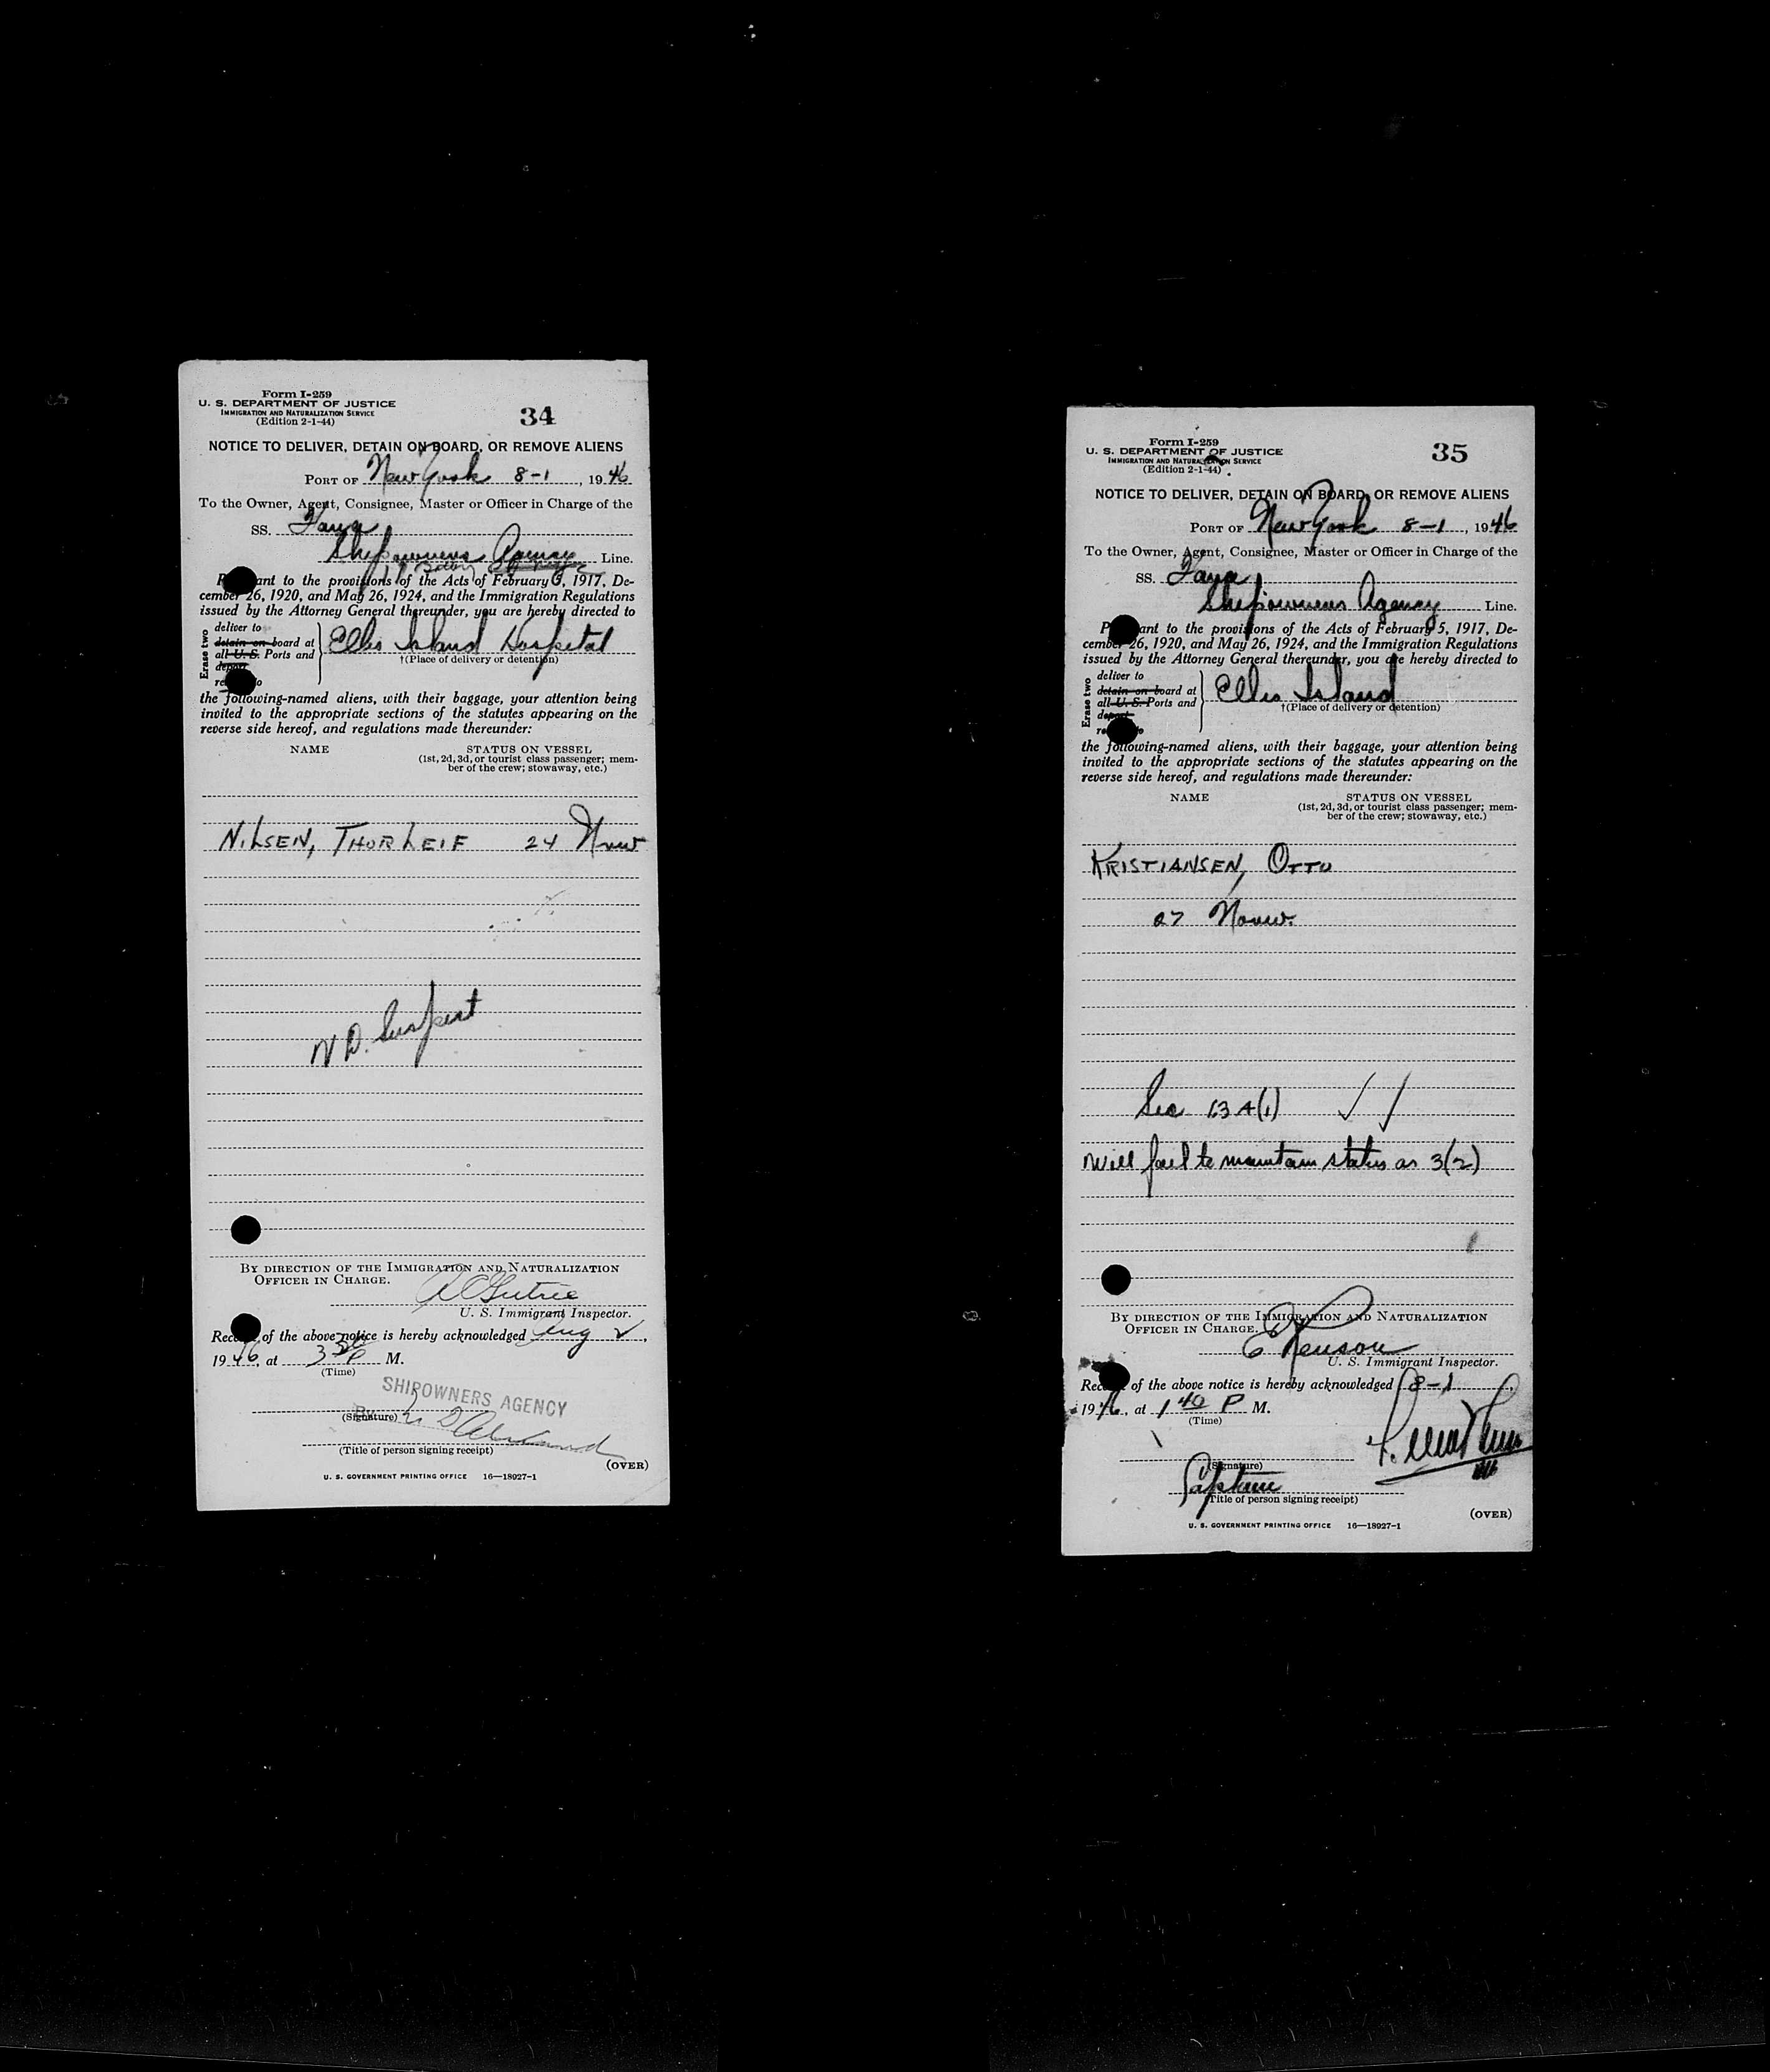 Form I-259
U. S. DEPARTMENT OF JUSTICE
IMMIGRATION AND NATURALIZATION SERVICE
(Edition 2-1-44)
34
NOTICE TO DELIVER, DETAIN ON BOARD, OR REMOVE ALIENS
PORT OF New York 8-1, 1946
To the Owner, Agent, Consignee, Master or Officer in Charge of the
SS.
Shipowners Agency Line.
ant to the provisions of the Acts of February 5, 1917, De-
cember 26, 1920, and May 26, 1924, and the Immigration Regulations
issued by the Attorney General thereunder, you are hereby directed to
Erase two
deliver to
detain on board at
all U. S. Ports and
deport
Ellis Island Hospital
†(Place of delivery or detention)
the following-named aliens, with their baggage, your attention being
invited to the appropriate sections of the statutes appearing on the
reverse side hereof, and regulations made thereunder:
NAME STATUS ON VESSEL
(1st, 2d, 3d, or tourist class passenger; mem-
ber of the crew; stowaway, etc.)
NILSEN, THORLEIF 24 Norw
V D. Suspect
BY DIRECTION OF THE IMMIGRATION AND NATURALIZATION
OFFICER IN CHARGE.
U. S. Immigrant Inspector.
of the above notice is hereby acknowledged Aug
1946, at 3 P M.
(Time)
SHIPOWNERS AGENCY
(Signature)
(Title of person signing receipt)
(OVER)
U. S. GOVERNMENT PRINTING OFFICE 16—18927-1
Form I-259
U. S. DEPARTMENT OF JUSTICE
IMMIGRATION AND NATURALIZATION SERVICE
(Edition 2-1-44)
35
NOTICE TO DELIVER, DETAIN ON BOARD, OR REMOVE ALIENS
PORT OF New York 8-1, 1946
To the Owner, Agent, Consignee, Master or Officer in Charge of the
SS.
Shipowners Agency Line.
ant to the provisions of the Acts of February 5, 1917, De-
cember 26, 1920, and May 26, 1924, and the Immigration Regulations
issued by the Attorney General thereunder, you are hereby directed to
Erase two
deliver to
detain on board at
all U. S. Ports and
deport
Ellis Island
†(Place of delivery or detention)
the following-named aliens, with their baggage, your attention being
invited to the appropriate sections of the statutes appearing on the
reverse side hereof, and regulations made thereunder:
NAME STATUS ON VESSEL
(1st, 2d, 3d, or tourist class passenger; mem-
ber of the crew; stowaway, etc.)
KRISTIANSEN, OTTO
27 Norw.
Sec 13 A(1)
Will fail to maintain status as 3(2)
BY DIRECTION OF THE IMMIGRATION AND NATURALIZATION
OFFICER IN CHARGE.
U. S. Immigrant Inspector.
of the above notice is hereby acknowledged 8-1
1946, at 1 40 P M.
(Time)
(Signature)
(Title of person signing receipt)
(OVER)
U. S. GOVERNMENT PRINTING OFFICE 16—18927-1